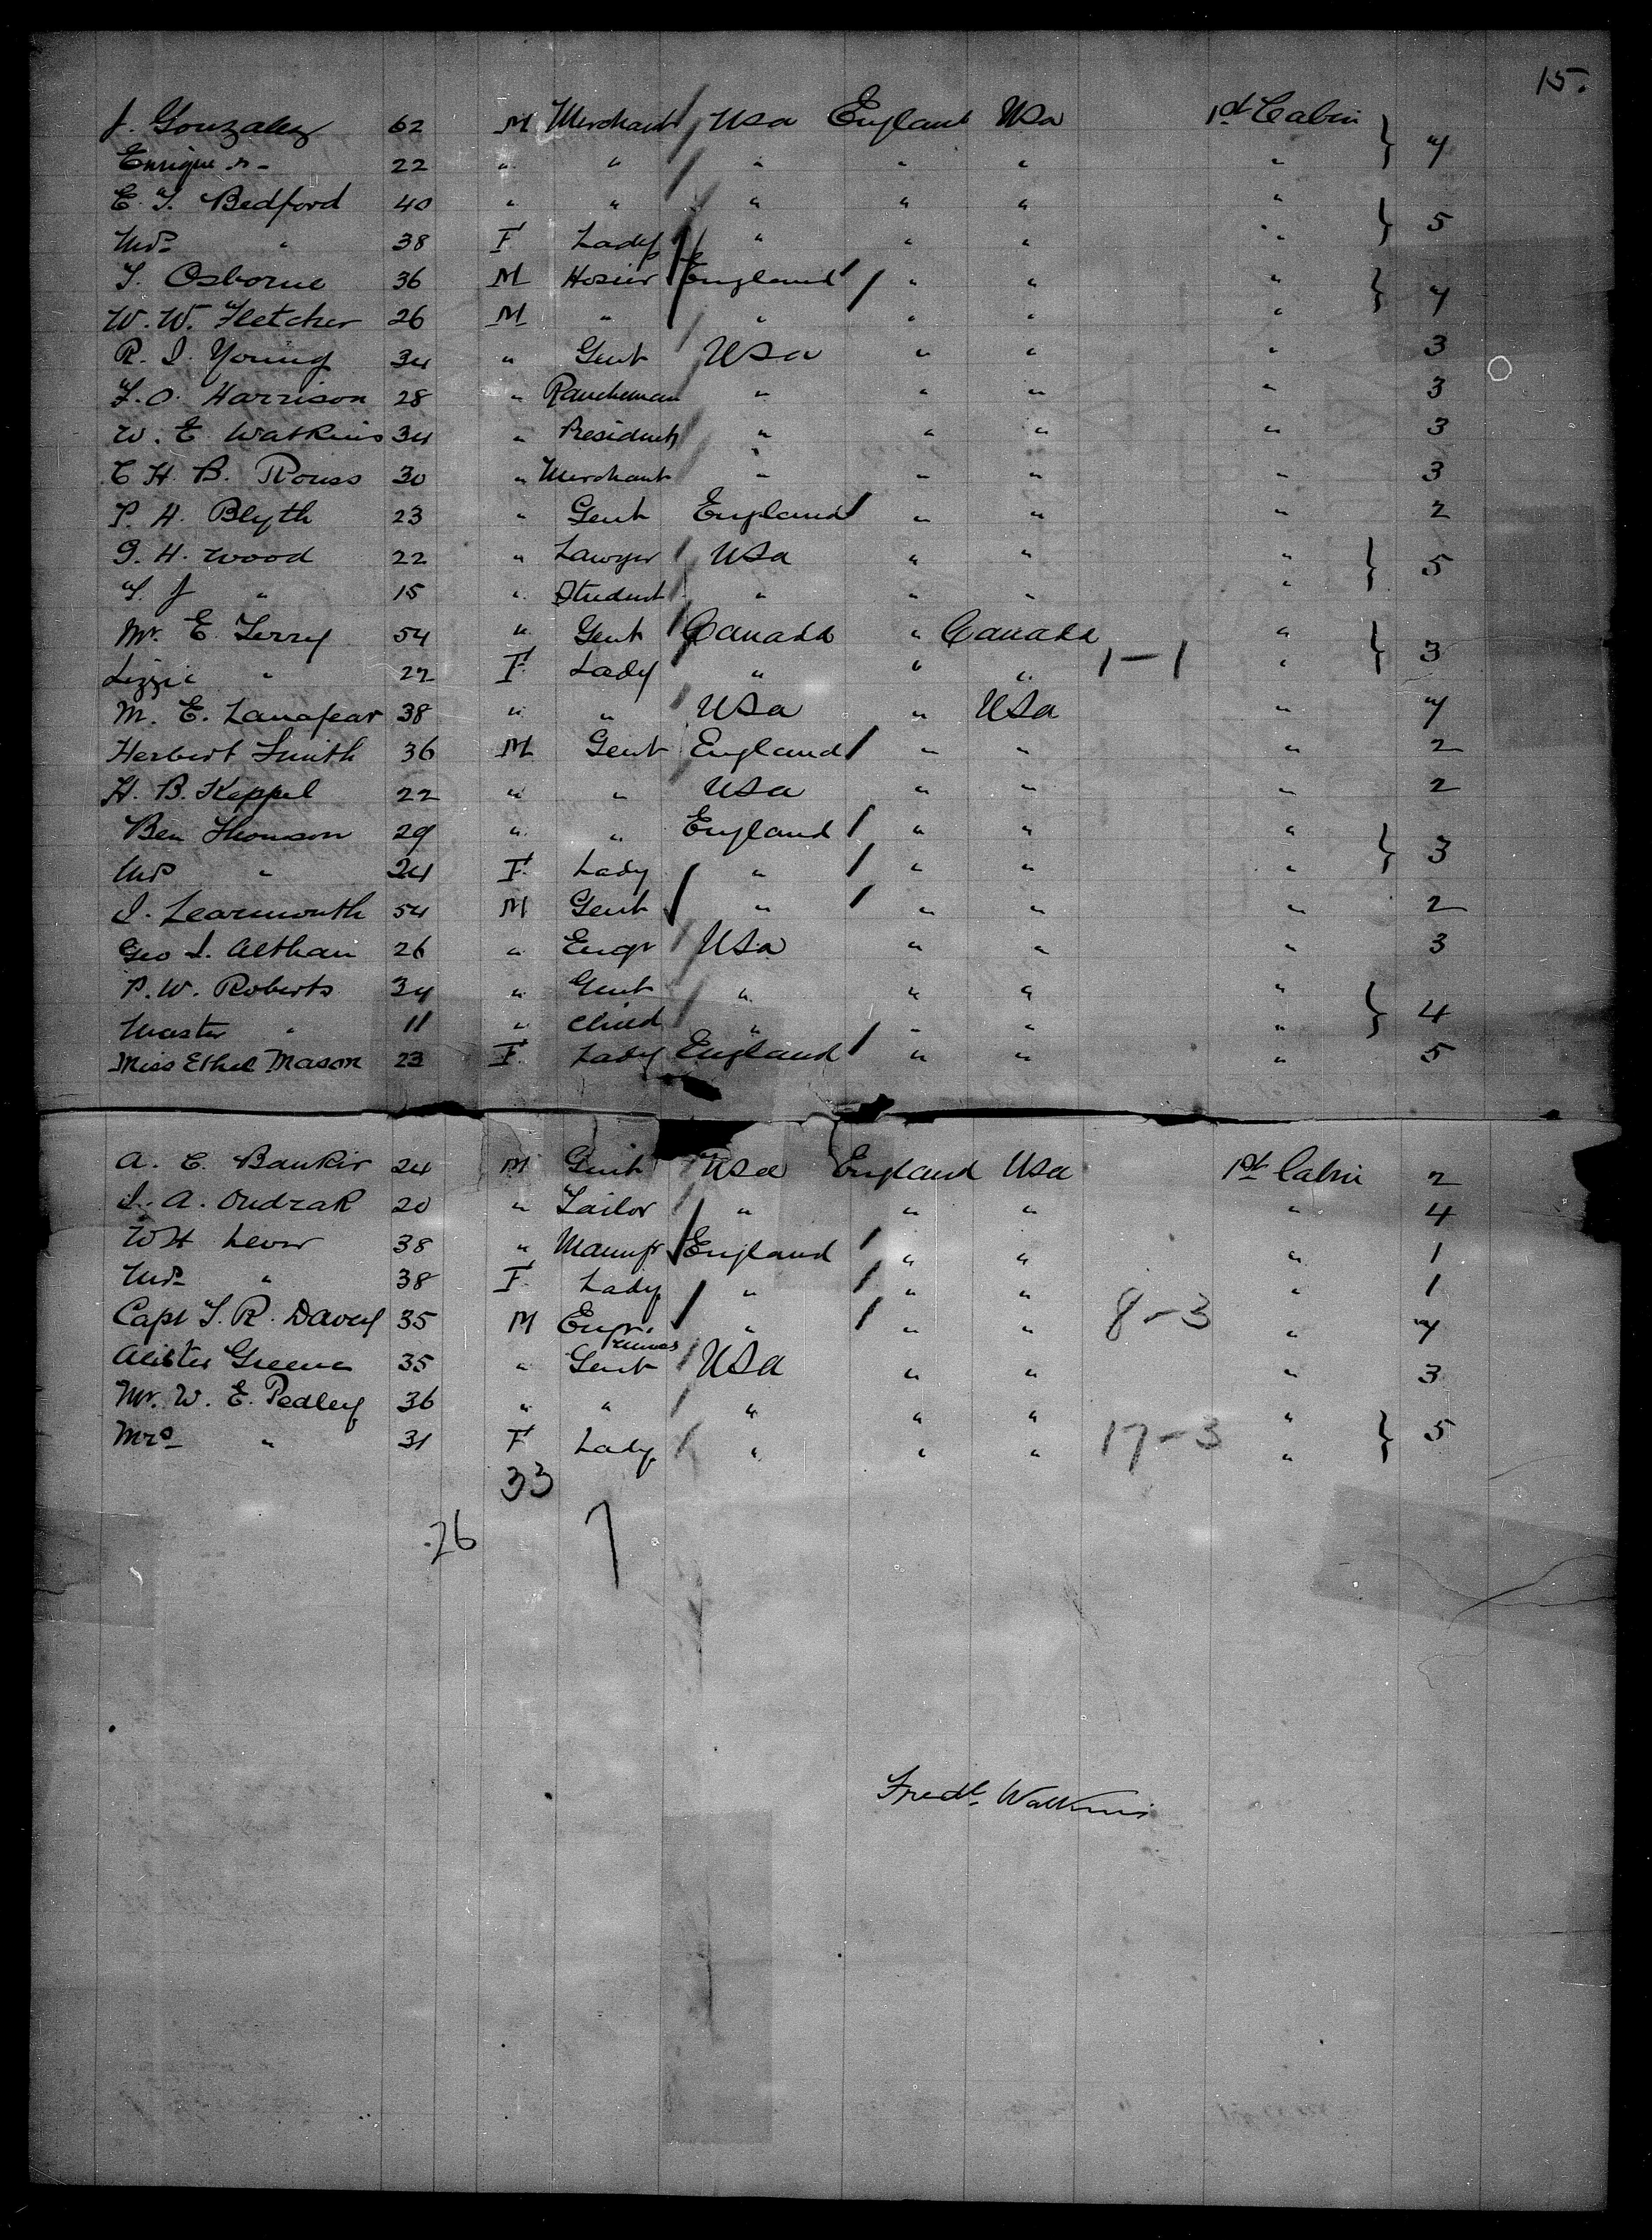 15.
J. Gonzalez 62 M Merchant USa England USa 1st Cabin } 7
Enrique " 22 " " " " " "
E. T. Bedford 40 " " " " " " } 5
Mrs " 38 F Lady " " " "
T. Osborne 36 M Hosier England " " " } 7
W. W. Fletcher 26 M " " " " "
R. I. Young 34 " Gent USa " " " 3
F. O. Harrison 28 " Rancheman " " " " 3
W. E Watkins 34 " President " " " " 3
C H. B. Rouss 30 " Merchant " " " " 3
P. H. Blyth 23 " Gent England " " " 2
G. H. Wood 22 " Lawyer USa " " " } 5
T. J " 15 " Student " " " "
Mr. E. Terry 54 " Gent Canada " Canada " } 3
Lizzie " 22 F Lady " " " 1-1 "
M. E. Lanafear 38 " " USa " USa " 7
Herbert Smith 36 M Gent England " " " 2
H. B. Keppel 22 " " USa " " " 2
Ben Thomson 29 " " England " " " } 3
Mrs " 24 F Lady " " " "
I. Learmouth 54 M Gent " " " " 2
Geo I. Althan 26 " Engr USa " " " 3
P. W. Roberts 34 " Gent " " " " } 4
Master " 11 " Child " " " "
Miss Ethel Mason 23 F Lady England " " " 5
A. E. Bankir 24 M Gent USa England USa 1st Cabin 2
I. A. Oudzak 20 " Tailor " " " " 4
W H Lever 38 " Manufr England " " " 1
Mrs " 38 F Lady " " " " 1
Capt T. R. Davey 35 M Engr. " " " 8-3 " 7
Alister Greene 35 " Gent USa " " " 3
Mr. W. E. Pedley 36 " " " " " " } 5
Mrs " 31 F Lady " " " 17-3 "
33
26 7
Fredk Watkins